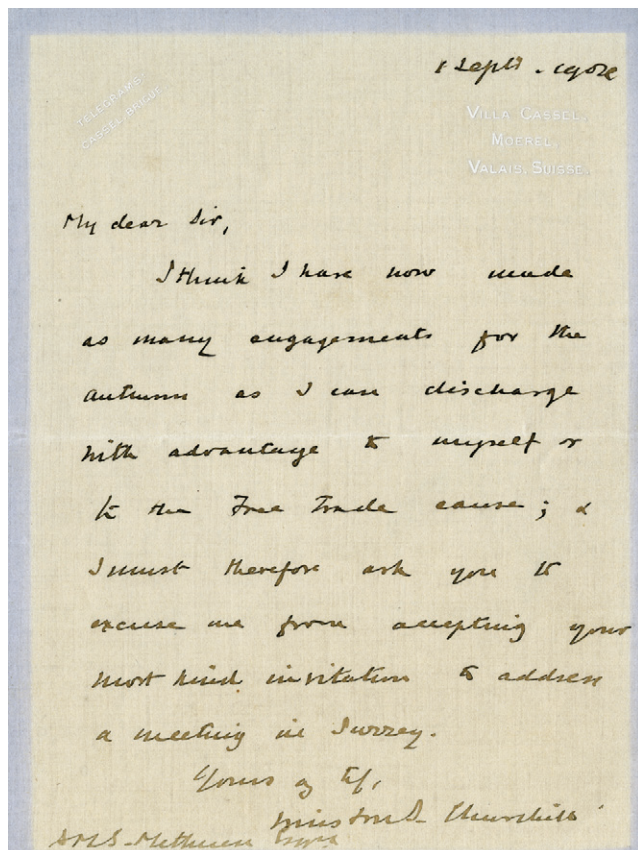 1 Sept. 1904
TELEGRAMS
CASSEL. BRIGUE
VILLA CASSEL.
MOEREL.
VALAIS. SUISSE.
My dear Sir,
I think I have now made
as many engagements for the
autumn as I can discharge
with advantage to myself or
to the Free Trade cause; &
I must therefore ask you to
excuse me from accepting your
most kind invitation to address
a meeting in Surrey.
Yours
Winston S. Churchill
Methuen Esqre